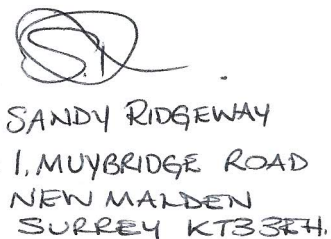 SANDY RIDGEWAY
1, MUYBRIDGE ROAD
NEW MALDEN
SURREY KT3 3EH.